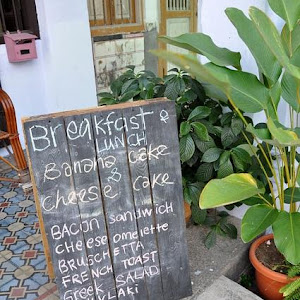 Breakfast &
LUNCH
Banana Cake
&
Cheese Cake
BACON Sandwich
Cheese omelette
BRUSCHETTA
FRENCH TOAST
Greek SALAD